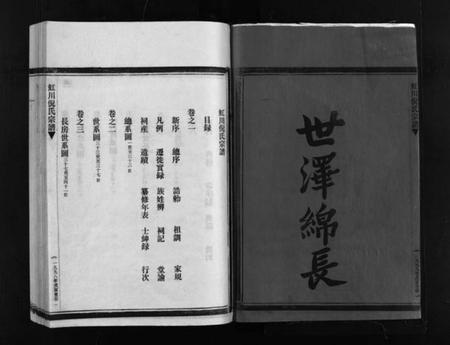 世澤綿長
虹川倪氏宗譜
目錄
卷之一
新序 總序 誥勅 祖訓 家規
凡例 遷徙實錄 族姓辨 祠記 堂諭
祠產 遺蹟 纂修年表 士紳錄 行次
總系圖
卷之二
世系圖
卷之三
長房世系圖
虹川倪氏宗譜